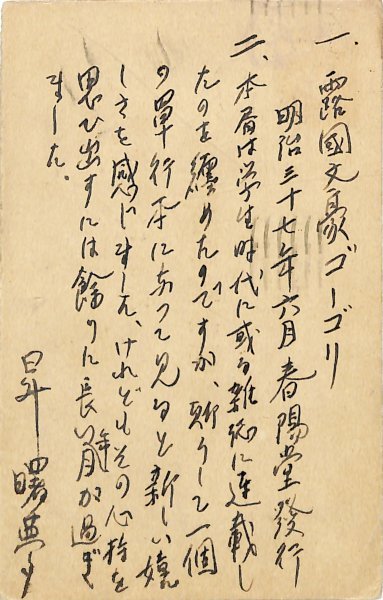 一、露國文豪、ゴーゴリ
明治三十七年六月春陽堂發行
二、本書は学生時代に或る雑誌に連載し
たのを纏めたのですが、斯うして一個
の單行本になつて見ると新しい嬉
しさを感じました、けれどもその心持を
思ひ出すには餘りに長い年月が過ぎ
ました。
昇曙夢